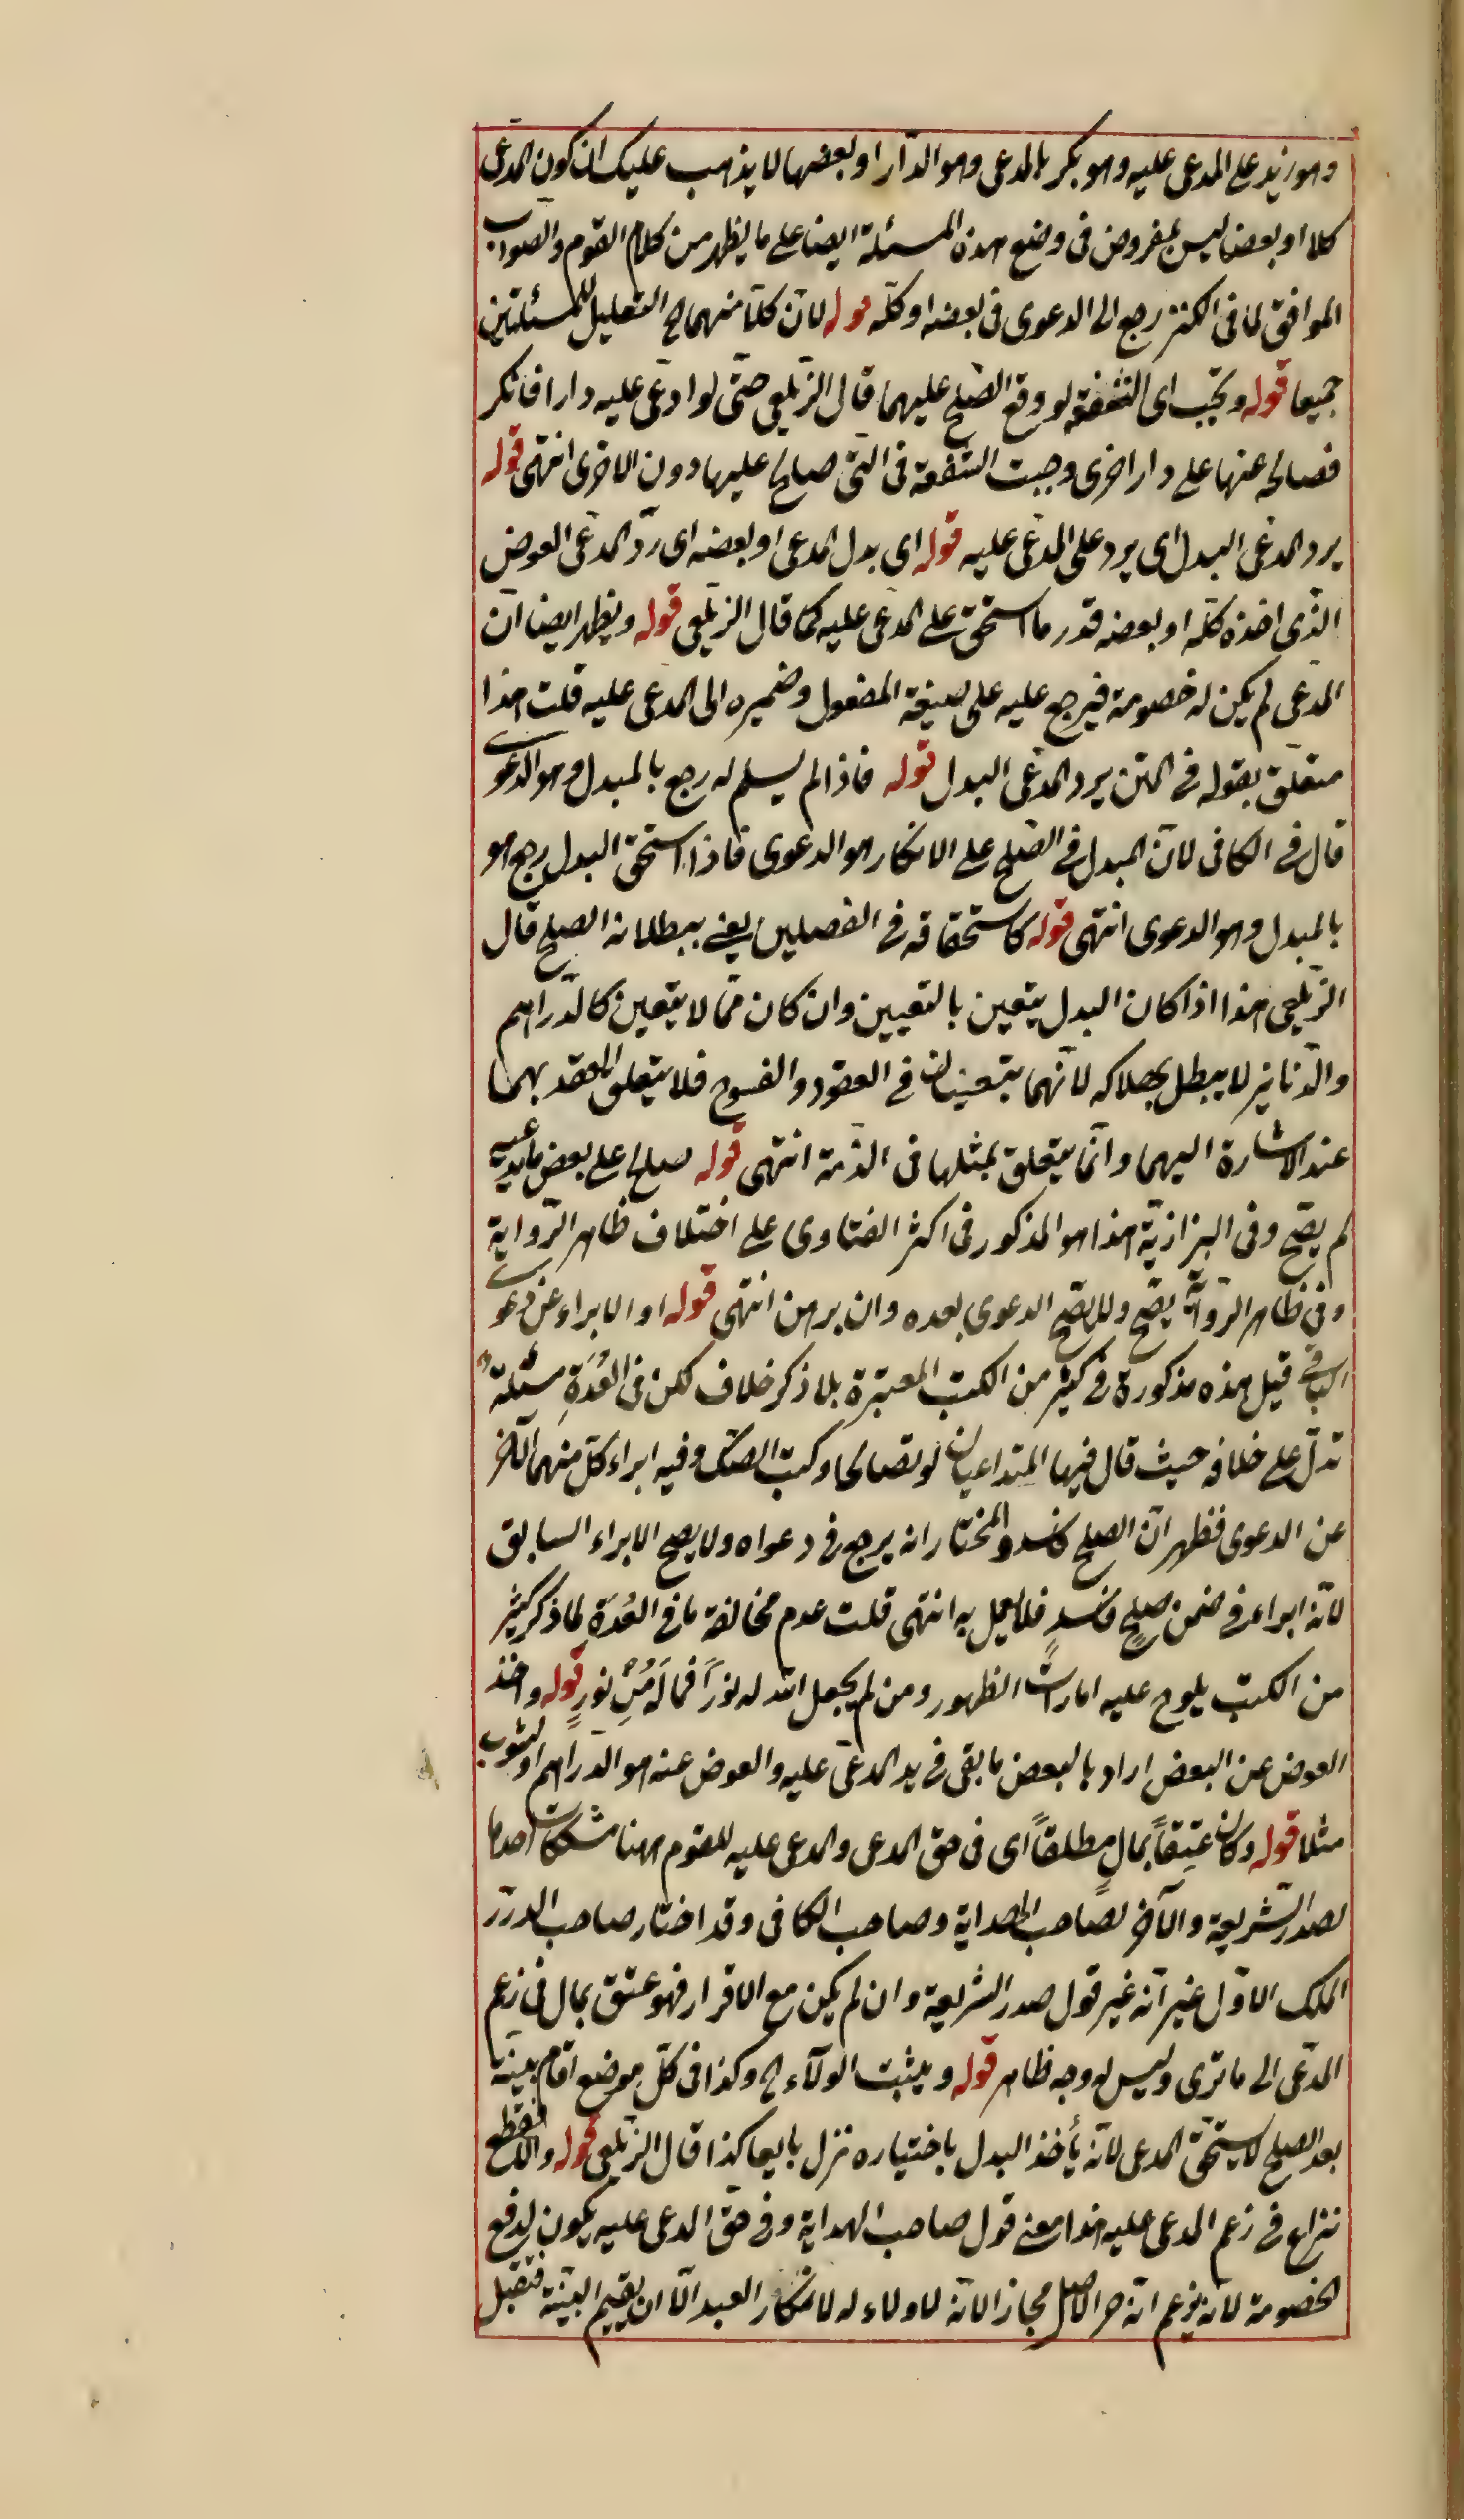 وهو زيد على المدعى عليه وهو بكر بالمدعى وهو الدّار او بعضها لا يذهب عليك ان كون المدّعى
كلا او بعضا ليس بمفروض فى وضع هذه المسئلة ايضا على ما يظهر من كلام القوم والصواب
الموافق لما فى الكنز رجع الى الدعوى فى بعضه او كلّه قوله لانّ كلّا منهما هو التعليل للمسئلتين
جميعا قوله وتجب اى الشفعة لو وقع الصّلح عليهما قال الزيلعى حتّى لو ادّعى عليه دارا فانكر
فصالحه عنها على دار اخرى وجبت الشّفعة فى التى صالح عليها دون الاخرى انتهى قوله
يرد المدّعى البدل اى يرد على المدّعى عليه قوله اى بدل المدعى او بعضه اى ردّ المدّعى العوض
الذّى اخذه كلّه او بعضه قدر ما استحق على المدعى عليه كما قال الزيلعى قوله ويظهر ايضا انّ
المدّعى لم يكن له خصومة فيرجع عليه على صيغة المفعول وضميره الى المدعى عليه قلت هذا
متعلّق بقوله فى المتن يرد المدّعى البدل قوله فاذا لم يسلم له رجع بالمبدل وهو الدعوى
قال فى الكافى لانّ المبدل فى الصّلح على الانكار هو الدعوى فاذا استحق البدل رجع هو
بالمبدل وهو الدعوى انتهى قوله كاستحقاقه فى الفصلين يعنى ببطلانه الصلح قال
الزّيلعى هذا اذا كان البدل يتعين بالتعيين وان كان ممّا لا يتعين كالدّراهم
والدّنانير لا يبطل بهلاكه لانّهما يتعينان فى العقود والفسوخ فلا يتعلق العقد بهما
عند الاشارة اليهما وانّما يتعلق بمثلها فى الذّمة انتهى قوله صالح على بعض ما يدّعيه
لم يصّح وفى البزازيّة هذا هو المذكور فى اكثر الفتاوى على اختلاف ظاهر الرّواية
وفى ظاهر الرّواية يصّح ولا يصّح الدعوى بعده وان برهن انتهى قوله او الابراء عن دعوى
الباقى قيل هذه مذكورة فى كثير من الكتب المعتبرة بلا ذكر خلاف لكن فى العُدَةِ مسئلة
تدلّ على خلافه حيث قال فيها المتداعيان لو تصالحا وكتب الصّك وفيه ابراء كلّ منهما الآخر
عن الدعوى فظهر انّ الصلح فاسد والمختار انه يرجع فى دعواه ولا يصح الابراء السابق
لانّه ابراء فى ضمن صلحٍ فاسدٍ فلا يعمل به انتهى قلت عدم مخالفة ما فى العُدَةِ لما ذكر كثير
من الكتب يلوح عليه امارات الظهور ومن لم يجعل الله له نورًا فما لَهُ مِنْ نورٍ قوله واخذ
العوض عن البعض اراد بالبعض ما بقى فى يد المدّعى عليه والعوض عنه هو الدّراهم او الثوب
مثلا قوله وكان عتِقًا بمالٍ مطلقًا اى فى حق المدعى والمدعى عليه للقوم ههنا مسلكان احدهما
لصدر الشّريعة والآخر لصاحب الهداية وصاحب الكافى وقد اختار صاحب الدرر
المسلك الاوّل غير انّه غير قول صدر الشريعة وان لم يكن مع الاقرار فهو عتق بمال فى زعم
المدّعى الى ما ترى وليس له وجه ظاهر قوله ويثبت الولآء ح وكذا فى كلّ موضع اقام بينة
بعد الصلح لا يستحق المدعى لانّه يأخذ البدل باختياره نزل بايعا كذا قال الزيلعى قوله والّا فقطع
نزاع فى زعم المدعى عليه هذا معنى قول صاحب الهداية وفى حقّ المدعى عليه يكون لدفع
الخصومة لانّه يزعم انّه حر الاصل مجاز الانّه لا ولاء له لانكار العبد الّا ان يقيم البيّنة فتقبل